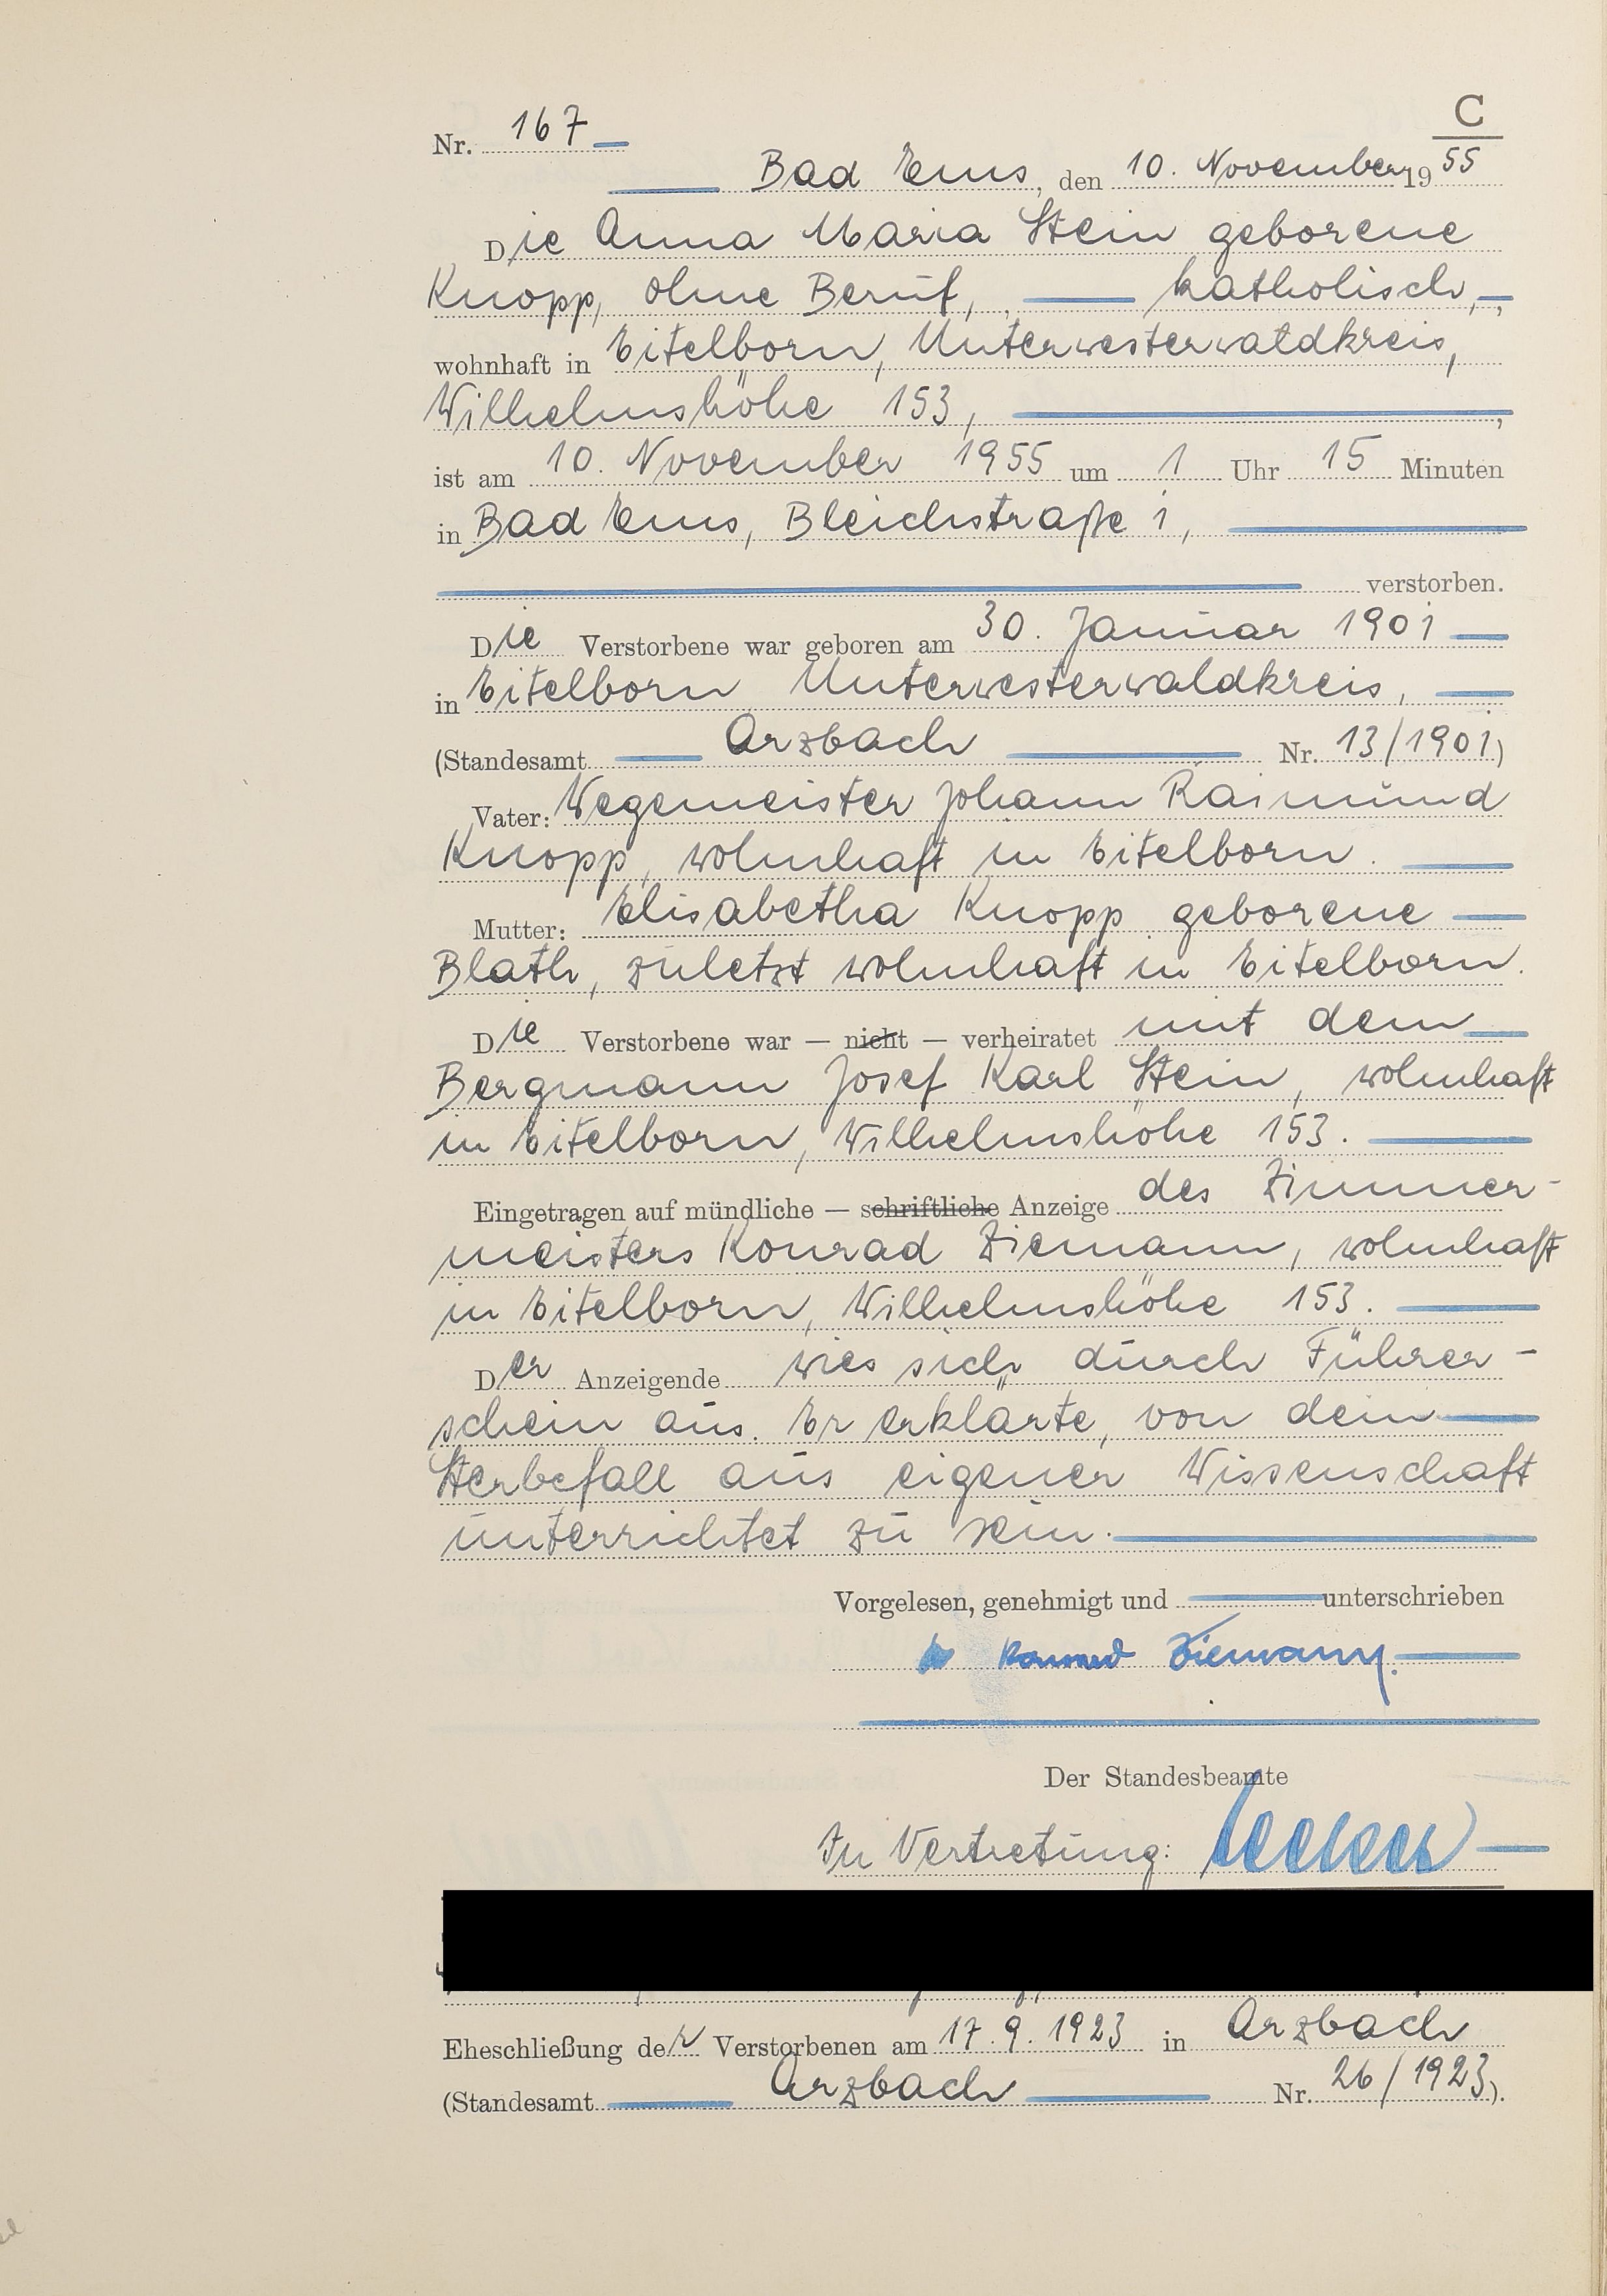 C
Nr. 167
Bad Ems, den 10. November 1955
Die Anna Maria Stein geborene
Knopp, ohne Beruf, katholisch,
wohnhaft in Eitelborn, Unterwesterwaldkreis,
Wilhelmshöhe 153,
ist am 10. November 1955 um 1 Uhr 15 Minuten
in Bad Ems, Bleichstraße 1,
verstorben.
Die Verstorbene war geboren am 30. Januar 1901
in Eitelborn Unterwesterwaldkreis,
(Standesamt Arzbach Nr. 13/1901)
Vater: Wegemeister Johann Raimund
Knopp, wohnhaft in Eitelborn.
Mutter: Elisabetha Knopp geborene
Blath, zuletzt wohnhaft in Eitelborn.
Die Verstorbene war — nicht — verheiratet mit dem
Bergmann Josef Karl Stein, wohnhaft
in Eitelborn, Wilhelmshöhe 153.
Eingetragen auf mündliche — schriftliche Anzeige des Zimmer-
meisters Konrad Ziemann, wohnhaft
in Eitelborn, Wilhelmshöhe 153.
Der Anzeigende wies sich durch Führer-
schein aus. Er erklärte, von dem
Sterbefall aus eigener Wissenschaft
unterrichtet zu sein.
Vorgelesen, genehmigt und unterschrieben
Konrad Ziemann.
Der Standesbeamte
In Vertretung:
Eheschließung der Verstorbenen am 17.9.1923 in Arzbach
(Standesamt Arzbach Nr. 26/1923).